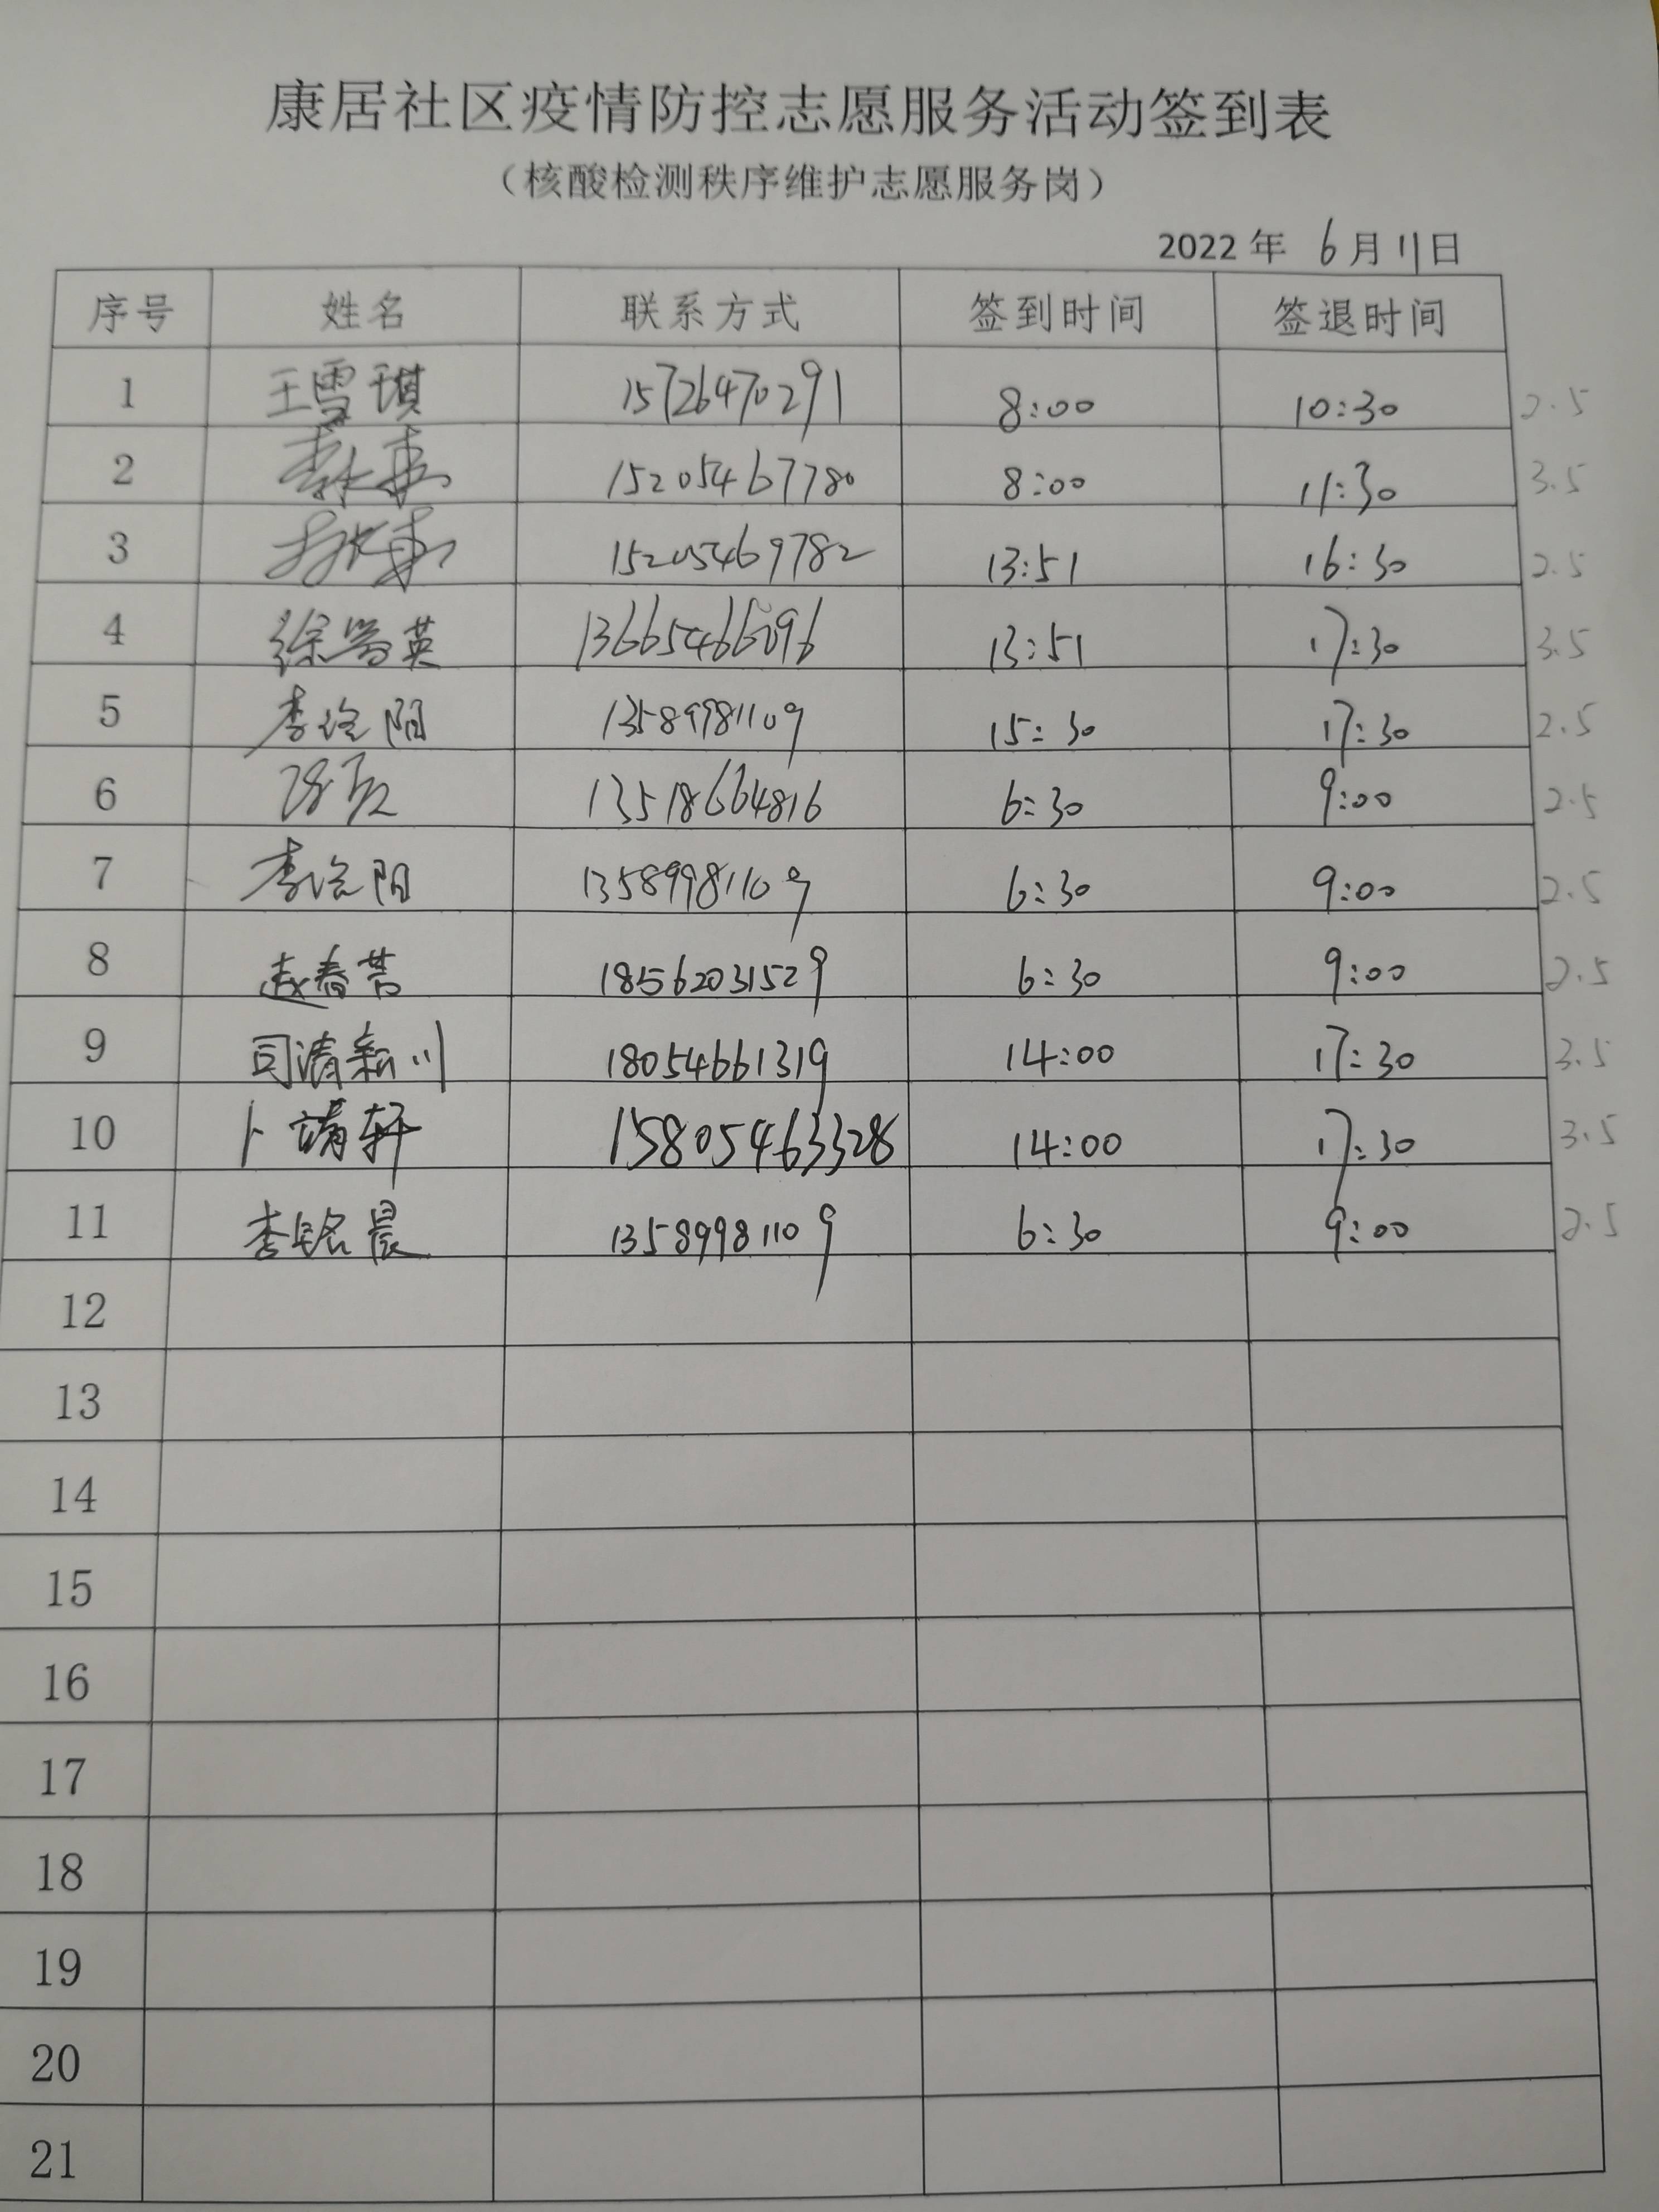 康居社区疫情防控志愿服务活动签到表
（核酸检测秩序维护志愿服务岗）
2022年 6月11日
序号 姓名 联系方式 签到时间 签退时间
1 王雪琪 15726470291 8:00 10:30 2.5
2 15205467780 8:00 11:30 3.5
3 15205469782 13:51 16:30 2.5
4 徐 英 13:51 17:30 3.5
5 李 阳 13589981109 15:30 17:30 2.5
6 13518664816 6:30 9:00 2.5
7 李 阳 13589981109 6:30 9:00 2.5
8 赵春 18562031529 6:30 9:00 2.5
9 司清新川 18054661319 14:00 17:30 3.5
10 卜靖轩 15805463328 14:00 17:30 3.5
11 李铭晨 13589981109 6:30 9:00 2.5
12
13
14
15
16
17
18
19
20
21